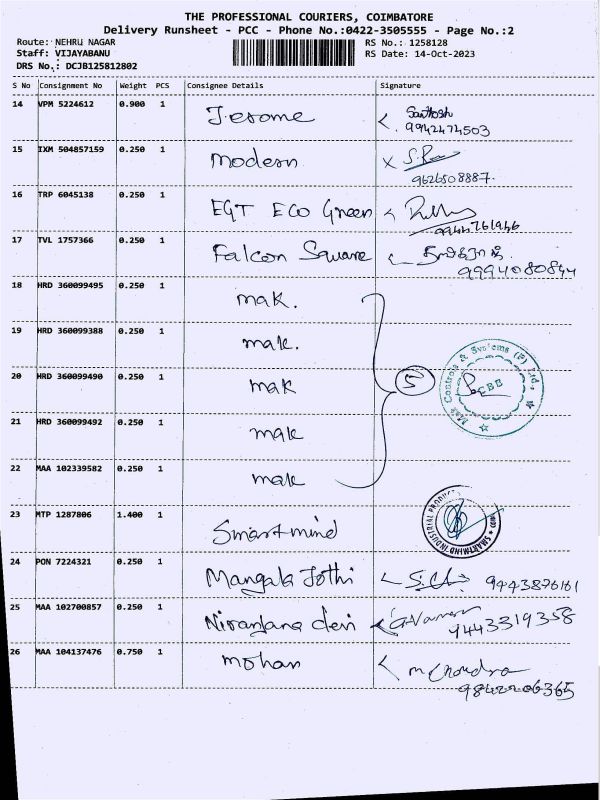 THE PROFESSIONAL COURIERS, COIMBATORE
Delivery Runsheet - PCC - Phone No.:0422-3505555 - Page No.:2
Route: NEHRU NAGAR RS No.: 1258128
Staff: VIJAYABANU RS Date: 14-Oct-2023
DRS No.: DCJB125812802
S No Consignment No Weight PCS Consignee Details Signature
14 VPM 5224612 0.900 1 Jerome Santhosh
9942474503
15 IXM 504857159 0.250 1 Modern
9626508887.
16 TRP 6045138 0.250 1 EGT ECO Green
9944761946
17 TVL 1757366 0.250 1 Falcon Square
9994080844
18 HRD 360099495 0.250 1 mak.
19 HRD 360099388 0.250 1 mak.
20 HRD 360099490 0.250 1 mak 5 Mak Controls & Systems (P) Ltd., CBE
21 HRD 360099492 0.250 1 mak
22 MAA 102339582 0.250 1 mak
23 MTP 1287806 1.400 1 Smartmind SMARTMIND INDUSTRIAL PRODUCT
24 PON 7224321 0.250 1 Mangala Jothi 9443876161
25 MAA 102700857 0.250 1 Niranjana devi
9443319358
26 MAA 104137476 0.750 1 mohan
9842206365